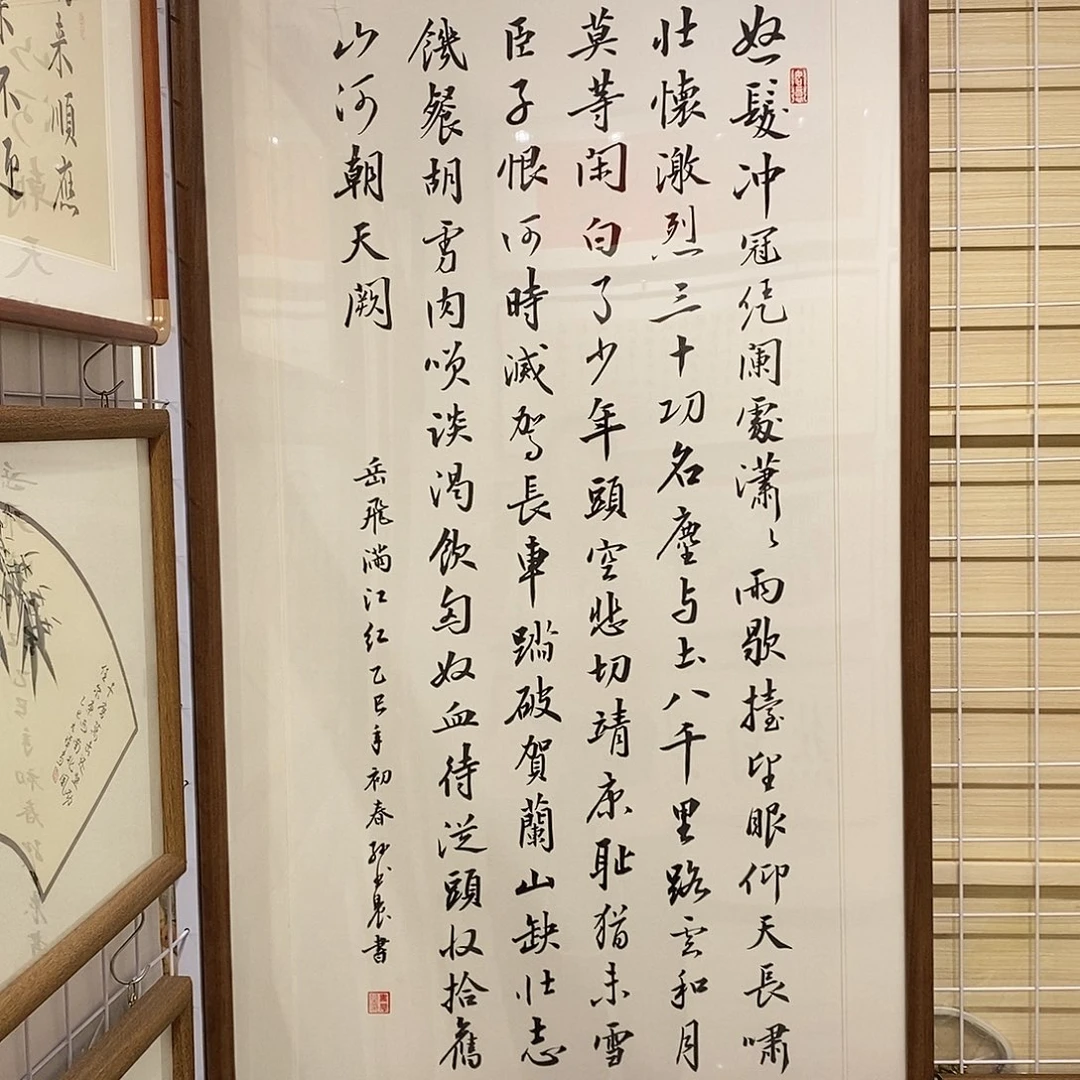 怒髮冲冠凭闌處瀟〻雨歇擡望眼仰天長嘯
壯懷激烈三十功名塵与土八千里路云和月
莫等闲白了少年頭空悲切靖康耻猶未雪
臣子恨何時滅駕長車踏破賀蘭山缺壯志
饑餐胡虜肉咲談渴飲匈奴血待從頭收拾舊
山河朝天闕
岳飛滿江紅乙巳年初春書
来順應
不迎